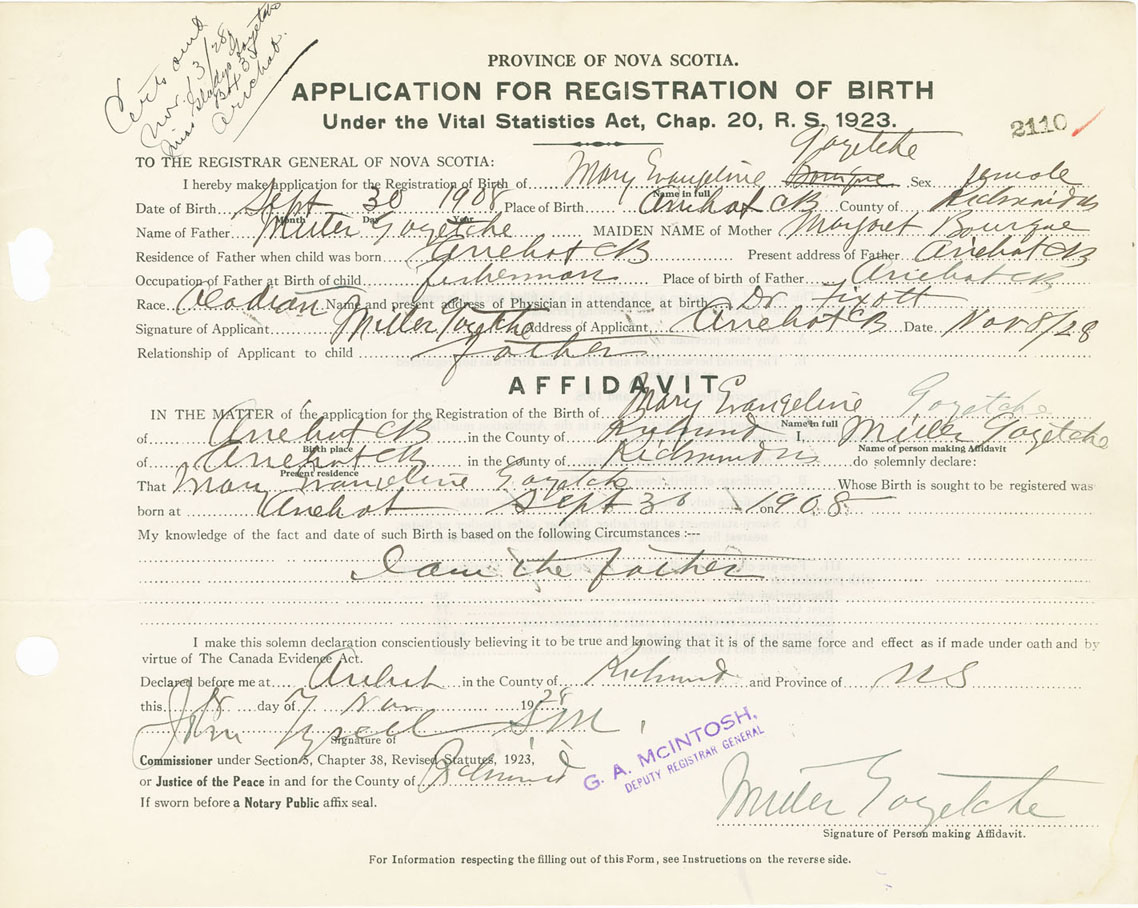 Certs out
Nov. 13/28
Miss Gladys Goyetche
Box 438
Arichat.
PROVINCE OF NOVA SCOTIA.
APPLICATION FOR REGISTRATION OF BIRTH
Under the Vital Statistics Act, Chap. 20, R. S. 1923.
2110
TO THE REGISTRAR GENERAL OF NOVA SCOTIA:
Goyetche
I hereby make application for the Registration of Birth of Mary Evangeline Bourque Sex female
Name in full
Date of Birth Sept 30 1908 Place of Birth Arichat CB County of Richmond
Month Day Year
Name of Father Miller Goyetche MAIDEN NAME of Mother Margaret Bourque
Residence of Father when child was born Arichat CB Present address of Father Arichat CB
Occupation of Father at Birth of child fisherman Place of birth of Father Arichat CB
Race Acadian Name and present address of Physician in attendance at birth Dr Fixott
Signature of Applicant Miller Goyetche Address of Applicant, Arichat CB Date Nov 8/28
Relationship of Applicant to child father
AFFIDAVIT
IN THE MATTER of the application for the Registration of the Birth of Mary Evangeline Goyetche
Name in full
of Arichat CB in the County of Richmond I, Miller Goyetche
Birth place Name of person making Affidavit
of Arichat CB in the County of Richmond do solemny declare:
Present residence
That Mary Evangeline Goyetche Whose Birth is sought to be registered was
born at Arichat Sept 30 on 1908
My knowledge of the fact and date of such Birth is based on the following Circumstances :---
I am the father
I make this solemn declaration conscientiously believing it to be true and knowing that it is of the same force and effect as if made under oath and by
virtue of The Canada Evidence Act.
Declared before me at Arichat in the County of Richmond and Province of NS
this 8 day of Nov 1928
John SM
Signature of
Commissioner under Section 5, Chapter 38, Revised Statutes, 1923,
or Justice of the Peace in and for the County of Richmond
If sworn before a Notary Public affix seal.
G. A. McINTOSH,
DEPUTY REGISTRAR GENERAL
Miller Goyetche
Signature of Person making Affidavit.
For Information respecting the filling out of this Form, see Instructions on the reverse side.